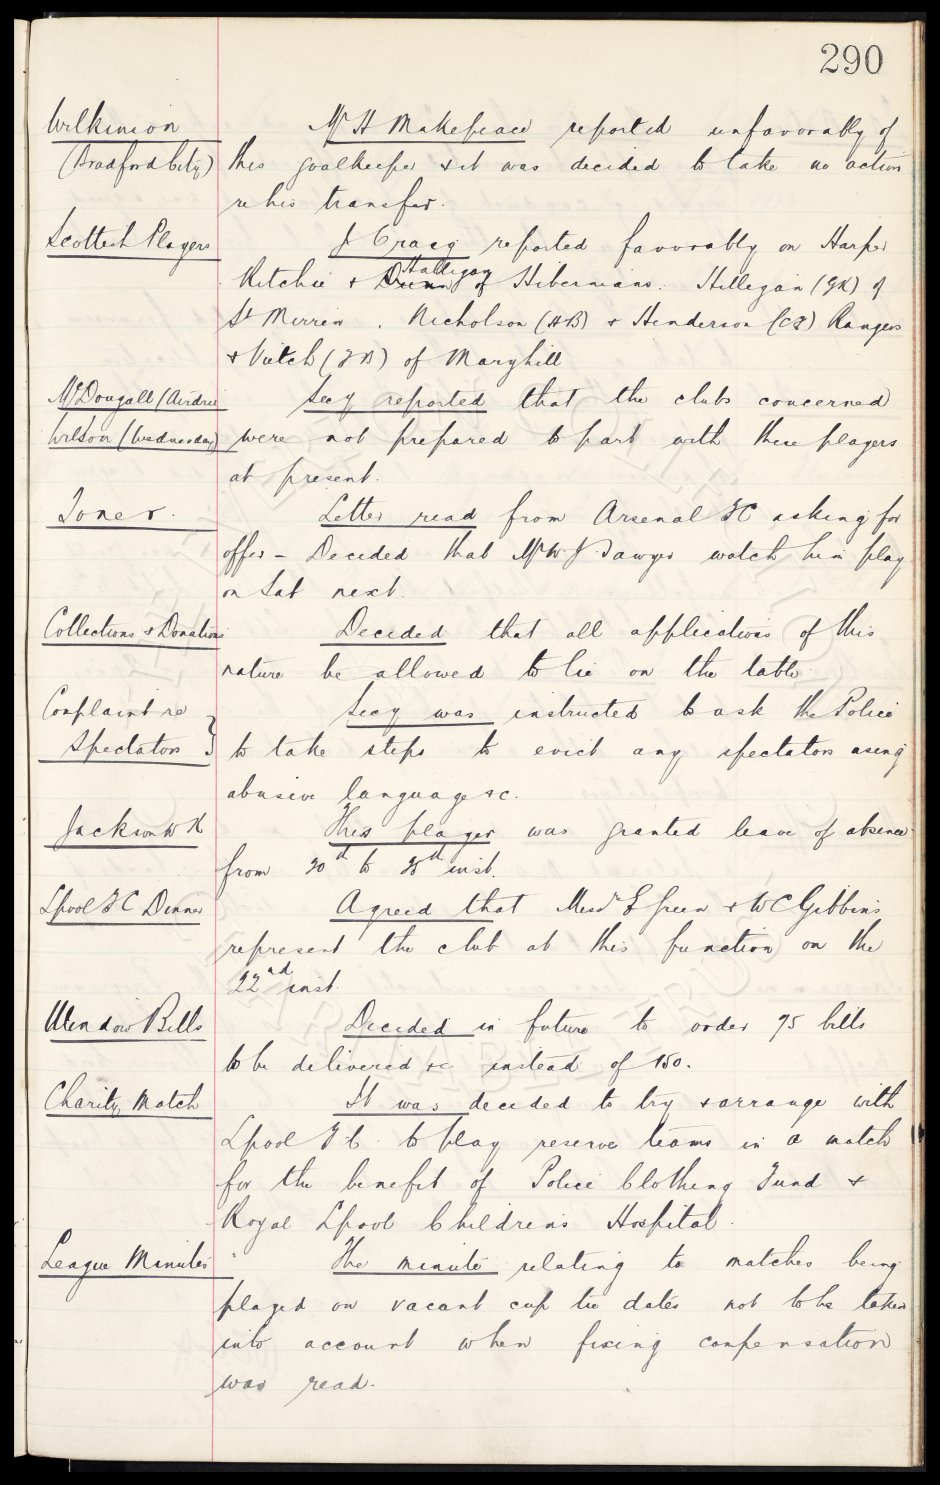 290
Wilkinson
(Bradford City)
Mr H Makepeace reported unfavorably of
this goalkeeper & it was decided to take no action
re his transfer.
Scottish Players
J Craig reported favorably on Harper
Ritchie & Dunn Halligan of Hibernians. Hilligan (GK) of
St Mirren, Nicholson (HB) & Henderson (CF) Rangers
& Veitch (FB) of Maryhill
McDougall (Airdrie
Wilson (Wednesday)
Secy reported that the clubs concerned
were not prepared to part with these players
at present.
Toner.
Letter read from Arsenal FC asking for
offer - Decided that Mr W.J. Sawyer watch him play
on Sat next.
Collections & Donations
Decided that all applications of this
nature be allowed to lie on the table.
Complaint re
Spectators
Secy was instructed to ask the Police
to take steps to evict any spectators using
abusive language &c.
Jackson W H
This player was granted leave of absence
from 20th to 28th inst.
Lpool FC Dinner
Agreed that Messrs E Green & W C Gibbins
represent the club at this function on the
22nd inst.
Window Bills
Decided in future to order 75 bills
to be delivered &c instead of 150.
Charity Match
It was decided to try & arrange with
Lpool F.C. to play reserve teams in a match
for the benefit of Police Clothing Fund &
Royal Lpool Childrens Hospital.
League Minutes
The minute relating to matches being
played on vacant cup tie dates not to be taken
into account when fixing compensation
was read.